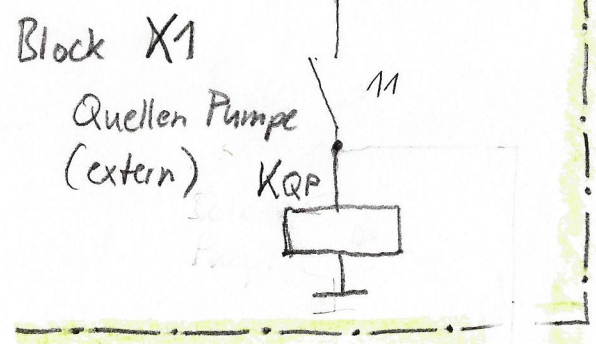 Block X1
11
Quellen Pumpe
(extern)
KQP